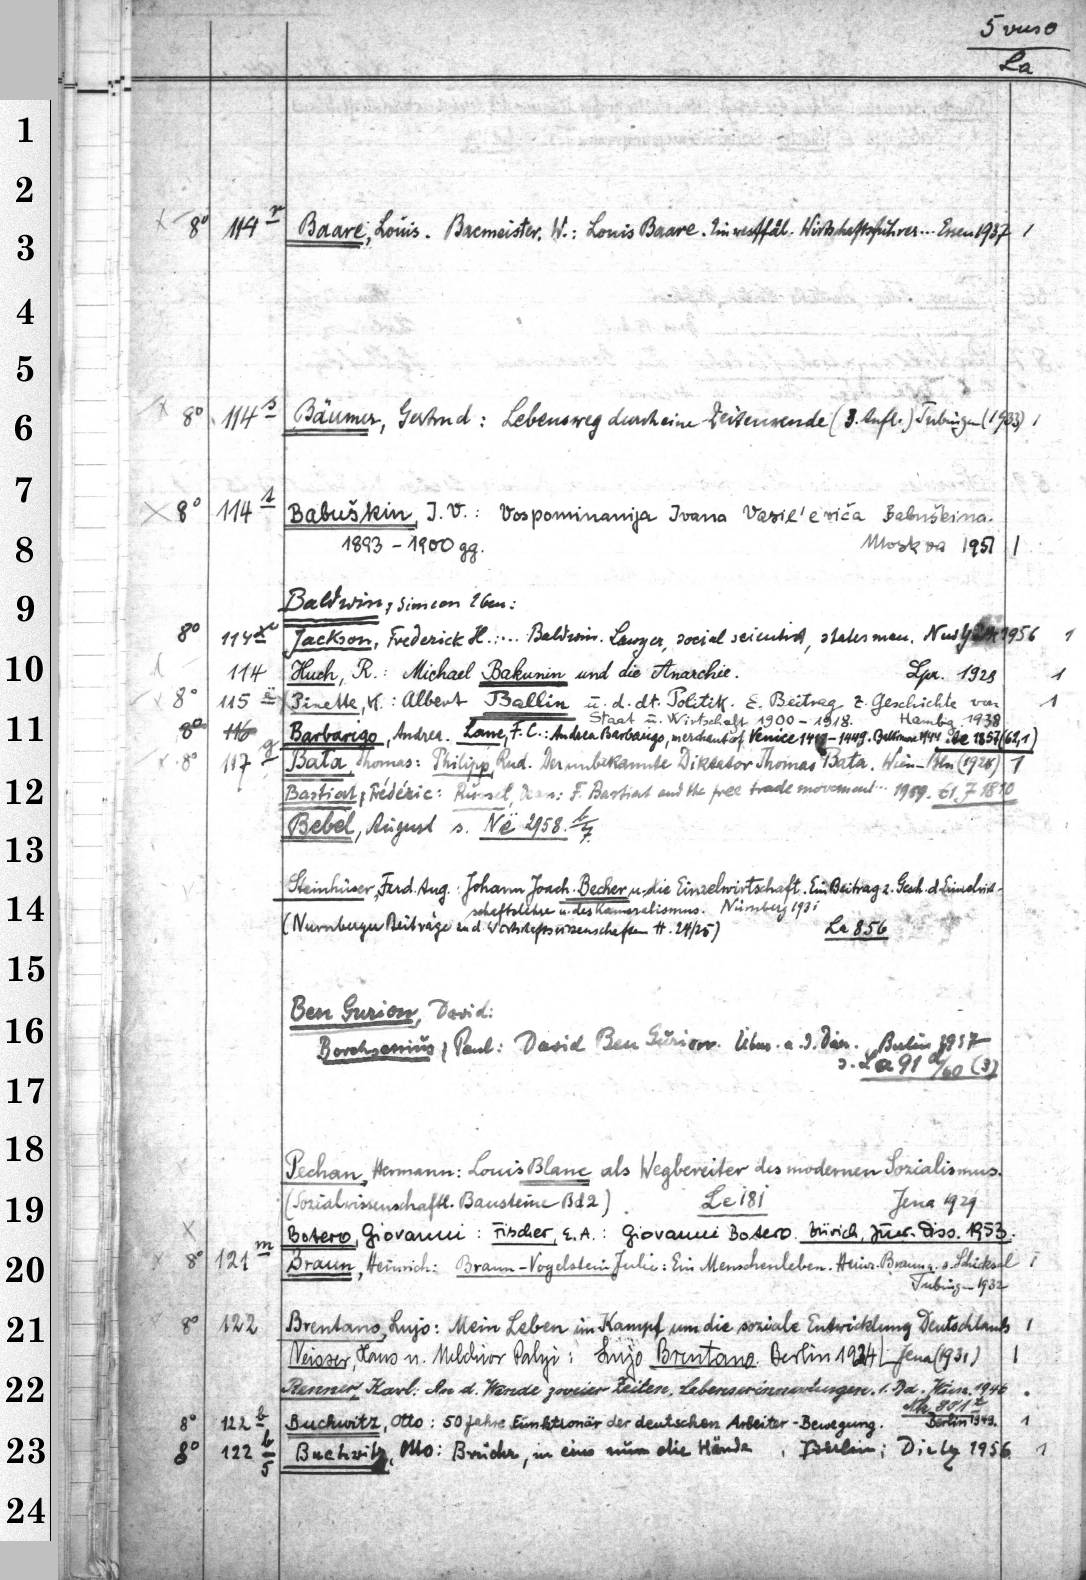 5 verso
La
1
2
8° 114 r Baare, Louis. Bacmeister, W.: Louis Baare. Ein westfäl. Wirtschaftsführer... Essen 1937 1
3
4
5
8° 114 s Bäumer, Gertrud: Lebensweg durch eine Zeitenwende (3. Aufl.) Tübingen (1933) 1
6
7
8° 114 t Babuškin, I. V.: Vospominanija Ivana Vasil'eviča Babuškina.
1893 - 1900 gg. Moskva 1951 1
8
9
Baldwin, Simeon Eben:
8° 114 Jackson, Frederick H.... Baldwin. Lawyer, social scientist, statesman. New York 1956 1
10
114 Huch, R.: Michael Bakunin und die Anarchie. Lpz. 1923 1
8° 115 Pinette, K.: Albert Ballin u. d. dt. Politik. E. Beitrag z. Geschichte von 1
Staat u. Wirtschaft 1900 - 1918. Hambg. 1938
11
8° 116 Barbarigo, Andrea. Lane, F. C.: Andrea Barbarigo, merchant of Venice 1418-1449. Baltimore 1944 (62,1)
8° 117 g Bata, Thomas: Philipp, Rud. Der unbekannte Diktator Thomas Bata. Wien-Bln (1928) 1
12
Bastiat, Frédéric: Russel, Dean: F. Bastiat and the free trade movement... 1959. 61.7 1810
Bebel, August s. Në 2958. b/7.
13
Steinhüser, Ferd. Aug.: Johann Joach. Becher u. die Einzelwirtschaft. Ein Beitrag z. Gesch. d. Einzelwirt-
14
schaftslehre u. des Kameralismus. Nürnberg 1931
(Nürnberger Beiträge zu d. Wirtschaftswissenschaften H. 24/25) La 856
15
Ben Gurion, David:
16
Borchsenius, Paul: David Ben Gurion. Übers. a. d. Dän. Berlin 1957
s. La 91 d/60 (3)
17
18
Pechan, Hermann: Louis Blanc als Wegbereiter des modernen Sozialismus.
19
(Sozialwissenschaftl. Bausteine Bd 2) Le 181 Jena 1929
Botero, Giovanni: Fischer, E. A.: Giovanni Botero. Zürich, Jur. Diss. 1953.
20
8° 121 m Braun, Heinrich: Braun-Vogelstein Julie: Ein Menschenleben. Heinr. Braun u. s. Schicksal 1
Tübingen 1932
21
8° 122 Brentano, Lujo: Mein Leben im Kampf um die soziale Entwicklung Deutschlands 1
Neisser, Hans u. Melchior Palyi: Lujo Brentano. Berlin 1924 Jena (1931) 1
22
Renner, Karl: An d. Wende zweier Zeiten. Lebenserinnerungen. 1. Bd. Wien 1946
8° 122 b Buchwitz, Otto: 50 Jahre Funktionär der deutschen Arbeiter-Bewegung. Berlin 1949. 1
23
8° 122 b/5 Buchwitz, Otto: Brüder, in eins nun die Hände. Berlin: Dietz 1956 1
24